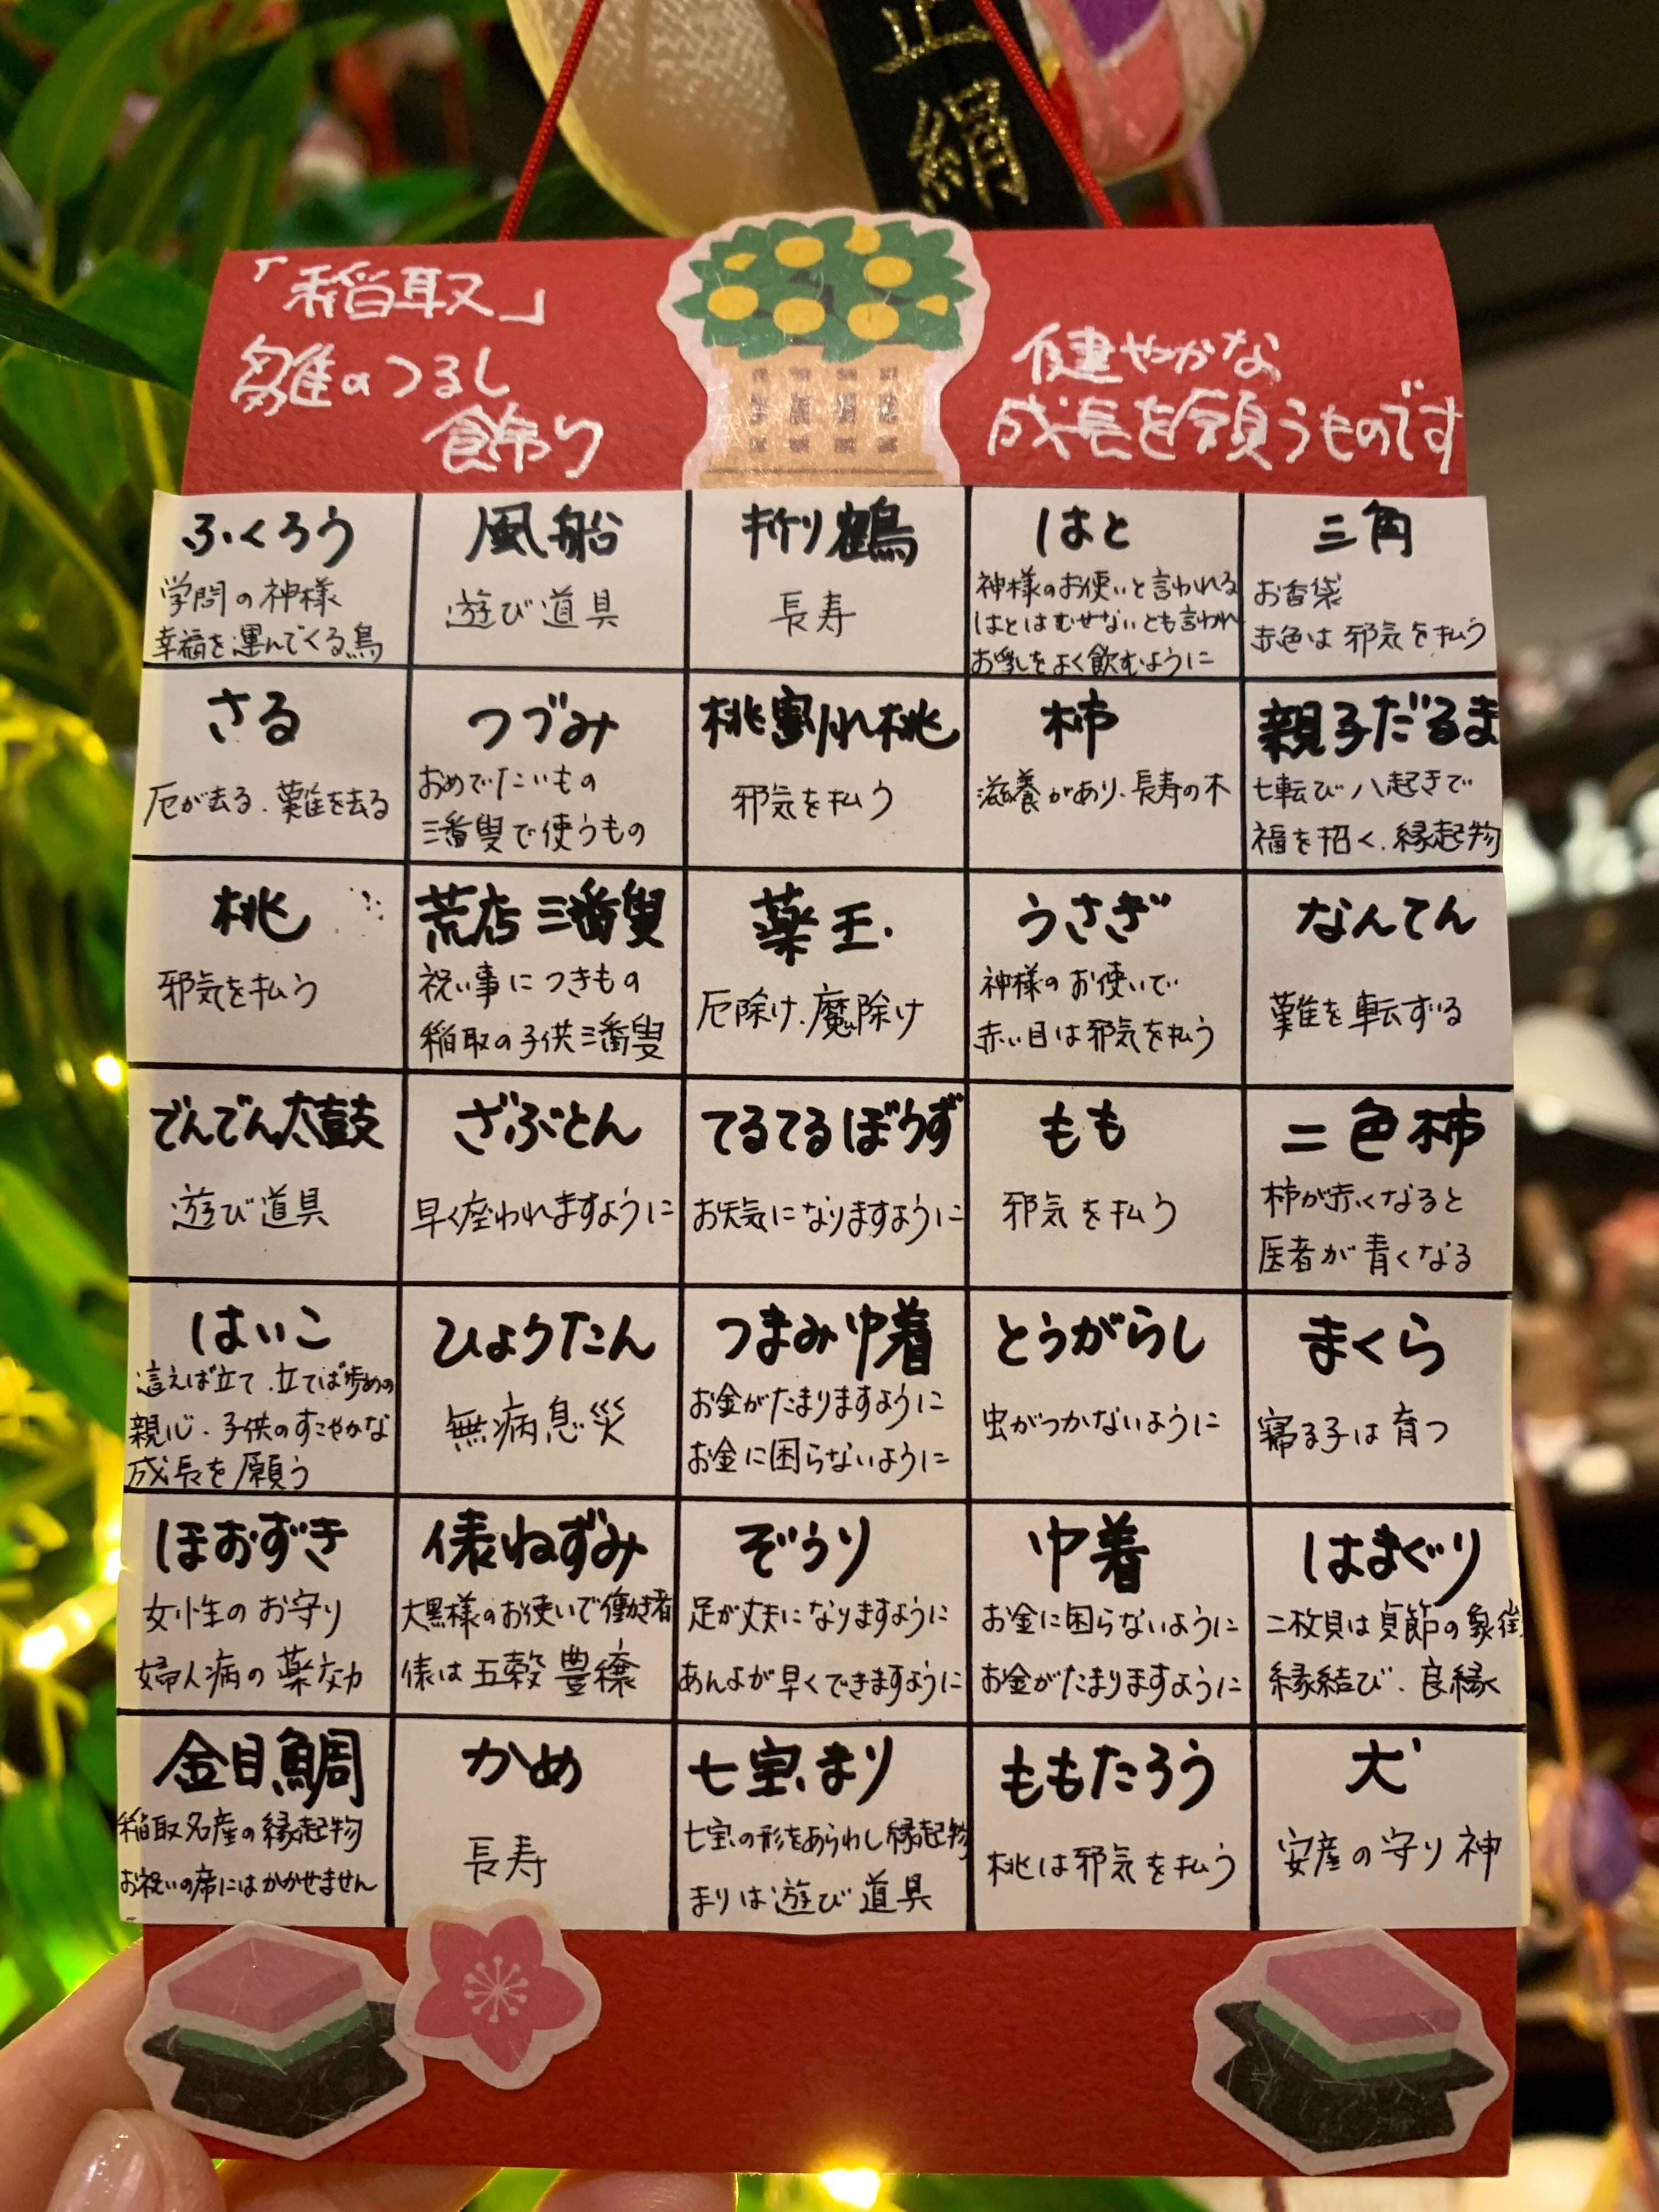 正絹
「稲取」
雛のつるし
飾り
健やかな
成長を願うものです
ふくろう
学問の神様
幸福を運んでくる鳥
風船
遊び道具
折り鶴
長寿
はと
神様のお使いと言われる
はとはむせないとも言われ
お乳をよく飲むように
三角
お香袋
赤色は邪気を払う
さる
厄が去る、難を去る
つづみ
おめでたいもの
三番叟で使うもの
桃割れ桃
邪気を払う
柿
滋養があり、長寿の木
親子だるま
七転び八起きで
福を招く、縁起物
桃
邪気を払う
荒店三番叟
祝い事につきもの
稲取の子供三番叟
薬玉
厄除け、魔除け
うさぎ
神様のお使いで
赤い目は邪気を払う
なんてん
難を転ずる
でんでん太鼓
遊び道具
ざぶとん
早く座われますように
てるてるぼうず
お天気になりますように
もも
邪気を払う
二色柿
柿が赤くなると
医者が青くなる
はいこ
這えば立て、立てば歩めの
親心、子供のすこやかな
成長を願う
ひょうたん
無病息災
つまみ巾着
お金がたまりますように
お金に困らないように
とうがらし
虫がつかないように
まくら
寝る子は育つ
ほおずき
女性のお守り
婦人病の薬効
俵ねずみ
大黒様のお使いで働き者
俵は五穀豊穣
ぞうり
足が丈夫になりますように
あんよが早くできますように
巾着
お金に困らないように
お金がたまりますように
はまぐり
二枚貝は貞節の象徴
縁結び、良縁
金目鯛
稲取名産の縁起物
お祝いの席にはかかせません
かめ
長寿
七宝まり
七宝の形をあらわし縁起物
まりは遊び道具
ももたろう
桃は邪気を払う
犬
安産の守り神